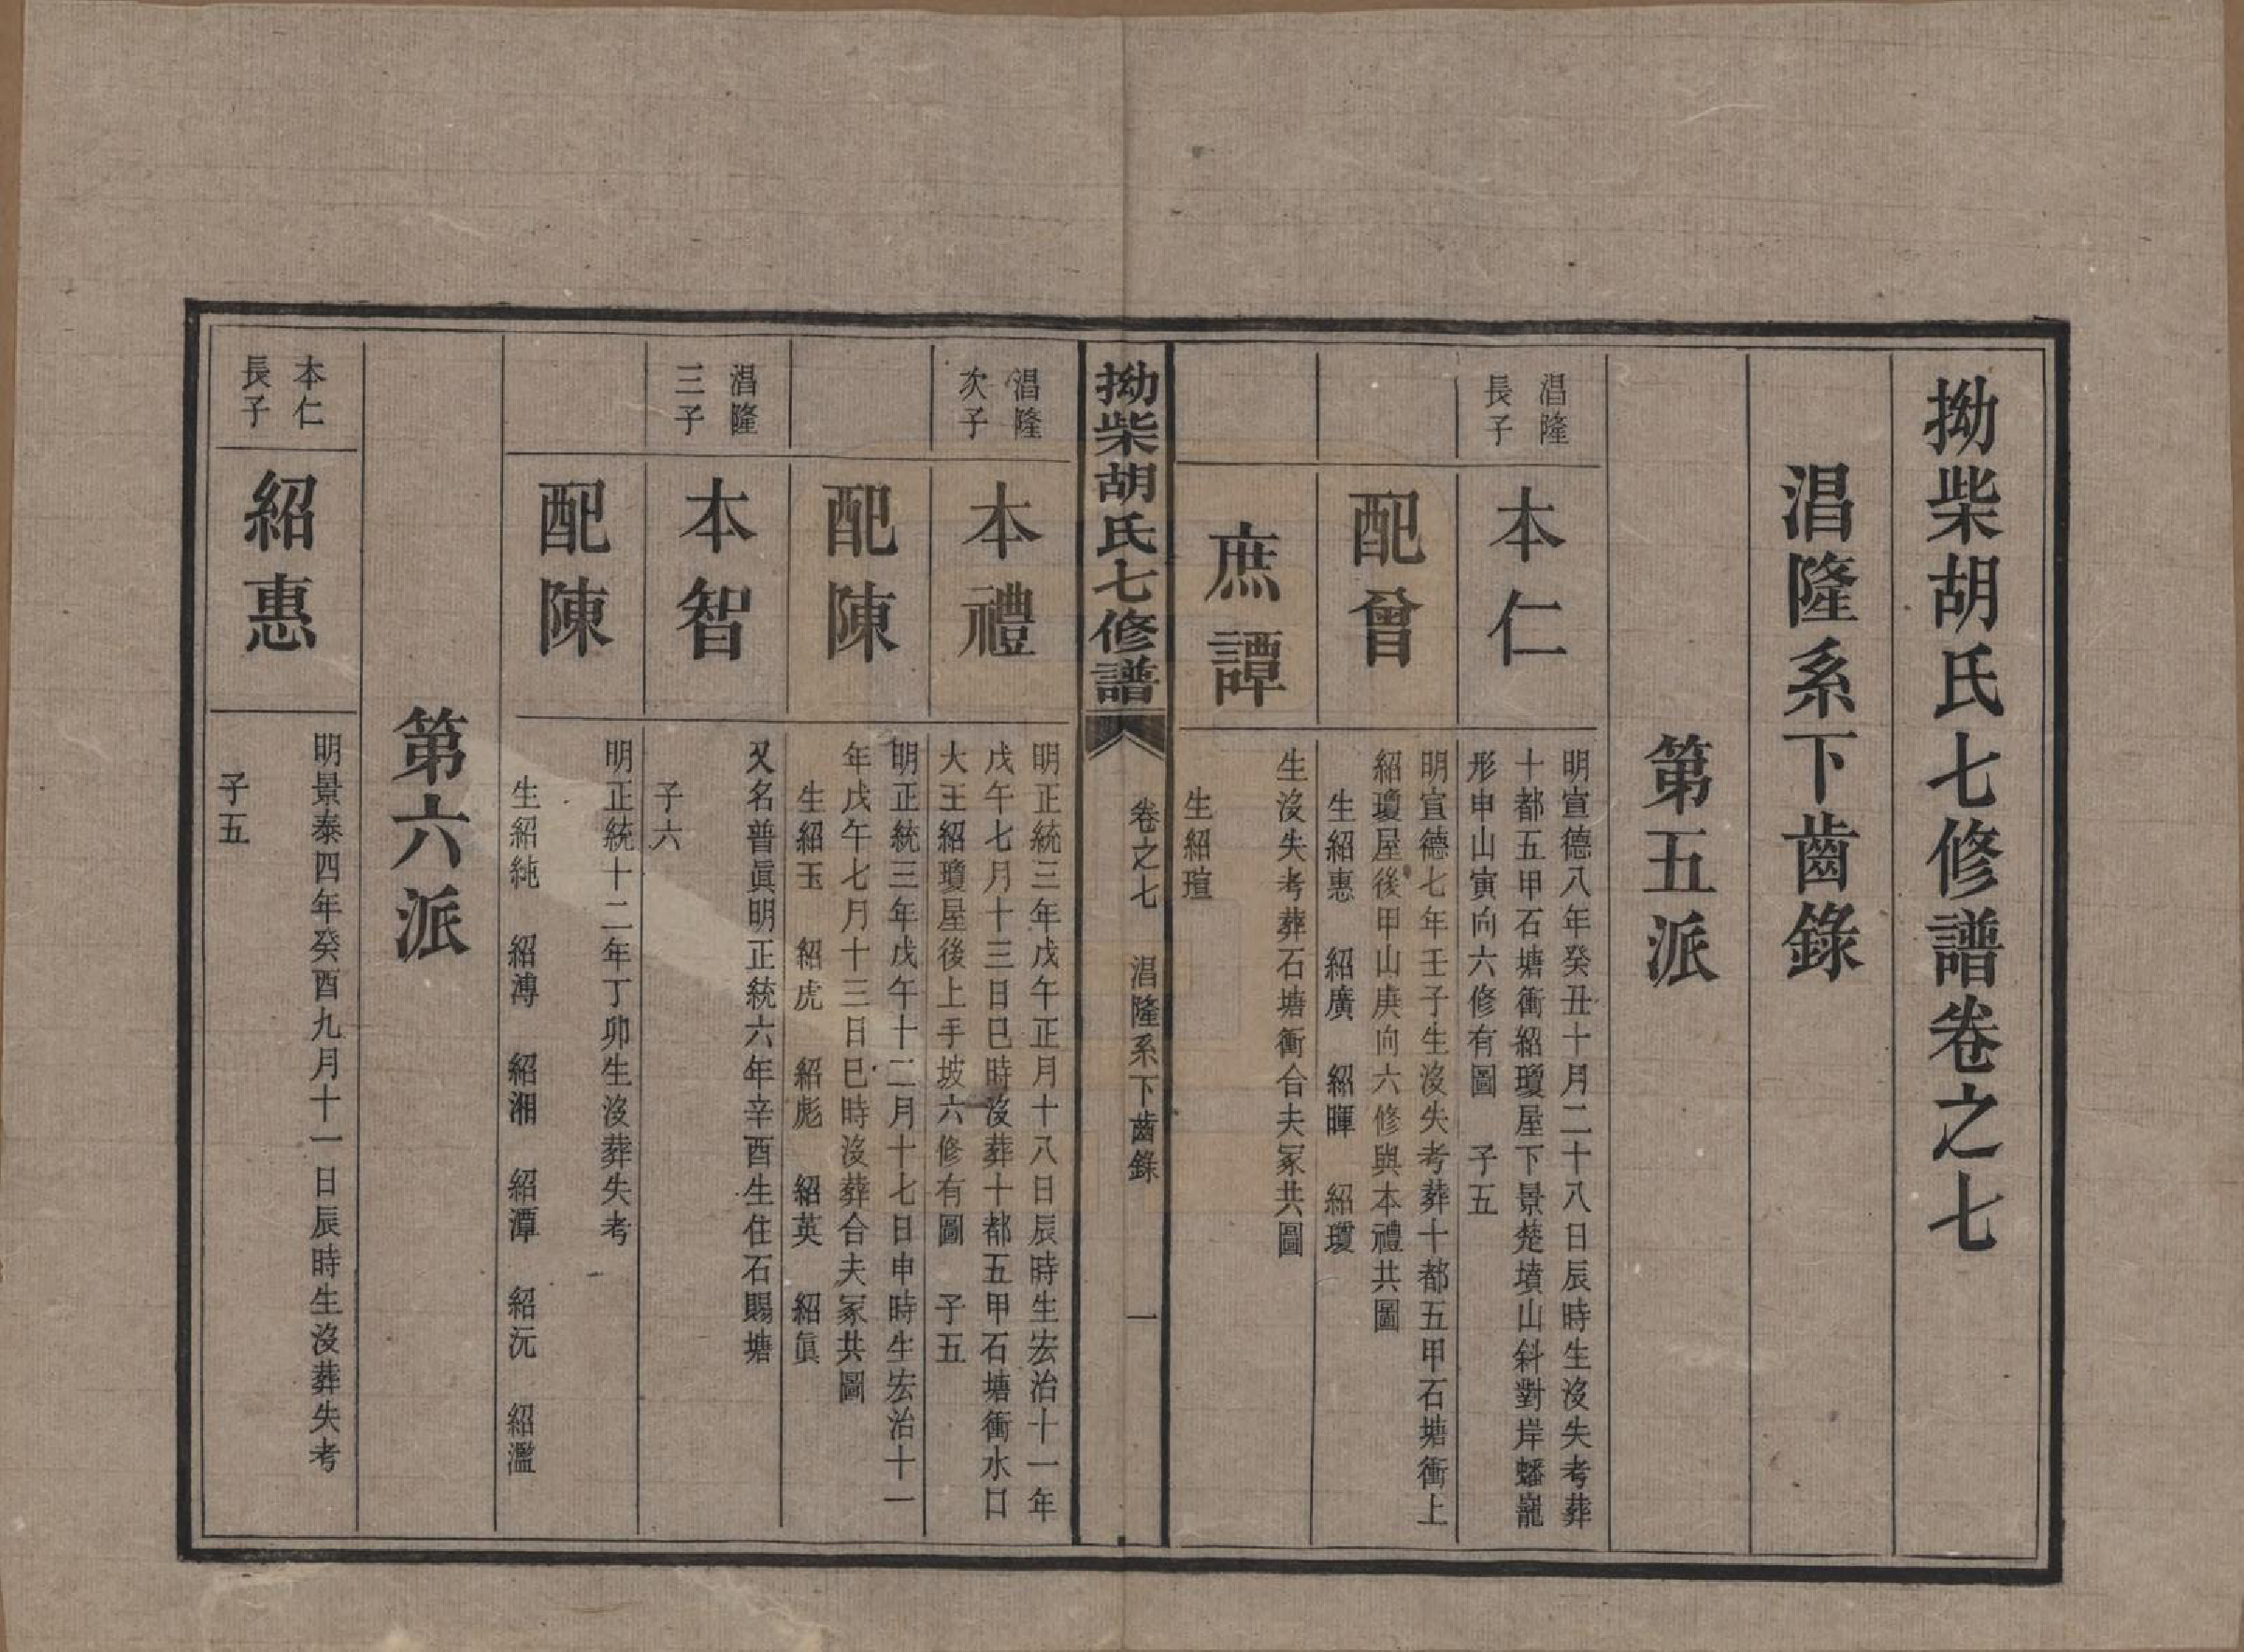 拗柴胡氏七修譜卷之七
淐隆系下齒錄
第五派
淐隆
長子
本仁
明宣德八年癸丑十月二十八日辰時生沒失考葬
十都五甲石塘衝紹瓊屋下景楚墳山斜對岸蟠龍
形申山寅向六修有圖　子五
配曾
明宣德七年壬子生沒失考葬十都五甲石塘衝上
紹瓊屋後甲山庚向六修與本禮共圖
生紹惠　紹廣　紹暉　紹瓊
庶譚
生沒失考葬石塘衝合夫冢共圖
生紹瑄
拗柴胡氏七修譜
卷之七　淐隆系下齒錄　一
淐隆
次子
本禮
明正統三年戊午正月十八日辰時生宏治十一年
戊午七月十三日巳時沒葬十都五甲石塘衝水口
大王紹瓊屋後上手坡六修有圖　子五
配陳
明正統三年戊午十二月十七日申時生宏治十一
年戊午七月十三日巳時沒葬合夫冢共圖
生紹玉　紹虎　紹彪　紹英　紹眞
淐隆
三子
本智
又名普眞明正統六年辛酉生住石賜塘
子六
配陳
明正統十二年丁卯生沒葬失考
生紹純　紹溥　紹湘　紹潭　紹沅　紹濫
第六派
本仁
長子
紹惠
明景泰四年癸酉九月十一日辰時生沒葬失考
子五